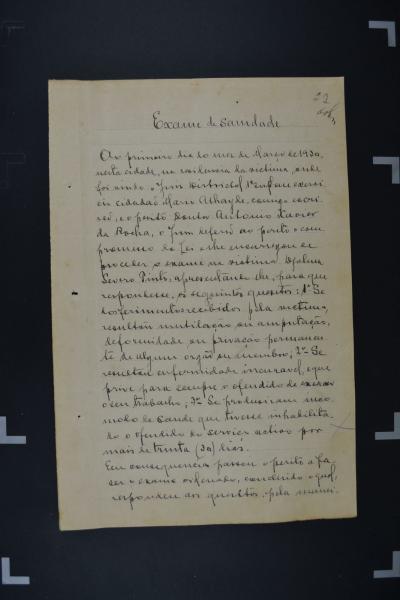 23
Exame de Sanidade
Ao primeiro dia do mez de Março de 1930,
nesta cidade, na residencia da victima, onde
foi vindo o Juiz Districtal 1º em exerci-
cio cidadão Mario Athayde, comigo escri-
vão, e o perito Doutor Antonio Xavier
da Rocha, o Juiz deferio ao perito o com-
promisso da Lei e lhe encarregou de
proceder o exame na victima Djalma
Severo Pinto, apresentando-lhe, para que
respondesse, os seguintes quesitos: 1º Se
os ferimentos recebidos pela victima,
resultou mutilação ou amputação,
deformidade ou privação permanen-
te de algum orgão ou membro; 2º Se
resultou enfermidade incuravel, e que
prive para sempre o offendido de exercer
o seu trabalho; 3º Se produziram incom-
modo de saude que tivesse inhabilita-
do o offendido do serviço activo por
mais de trinta (30) dias.
Em consequencia passou o perito a fa-
zer o exame ordenado, concluido o qual,
respondeu aos quesitos, pela manei-